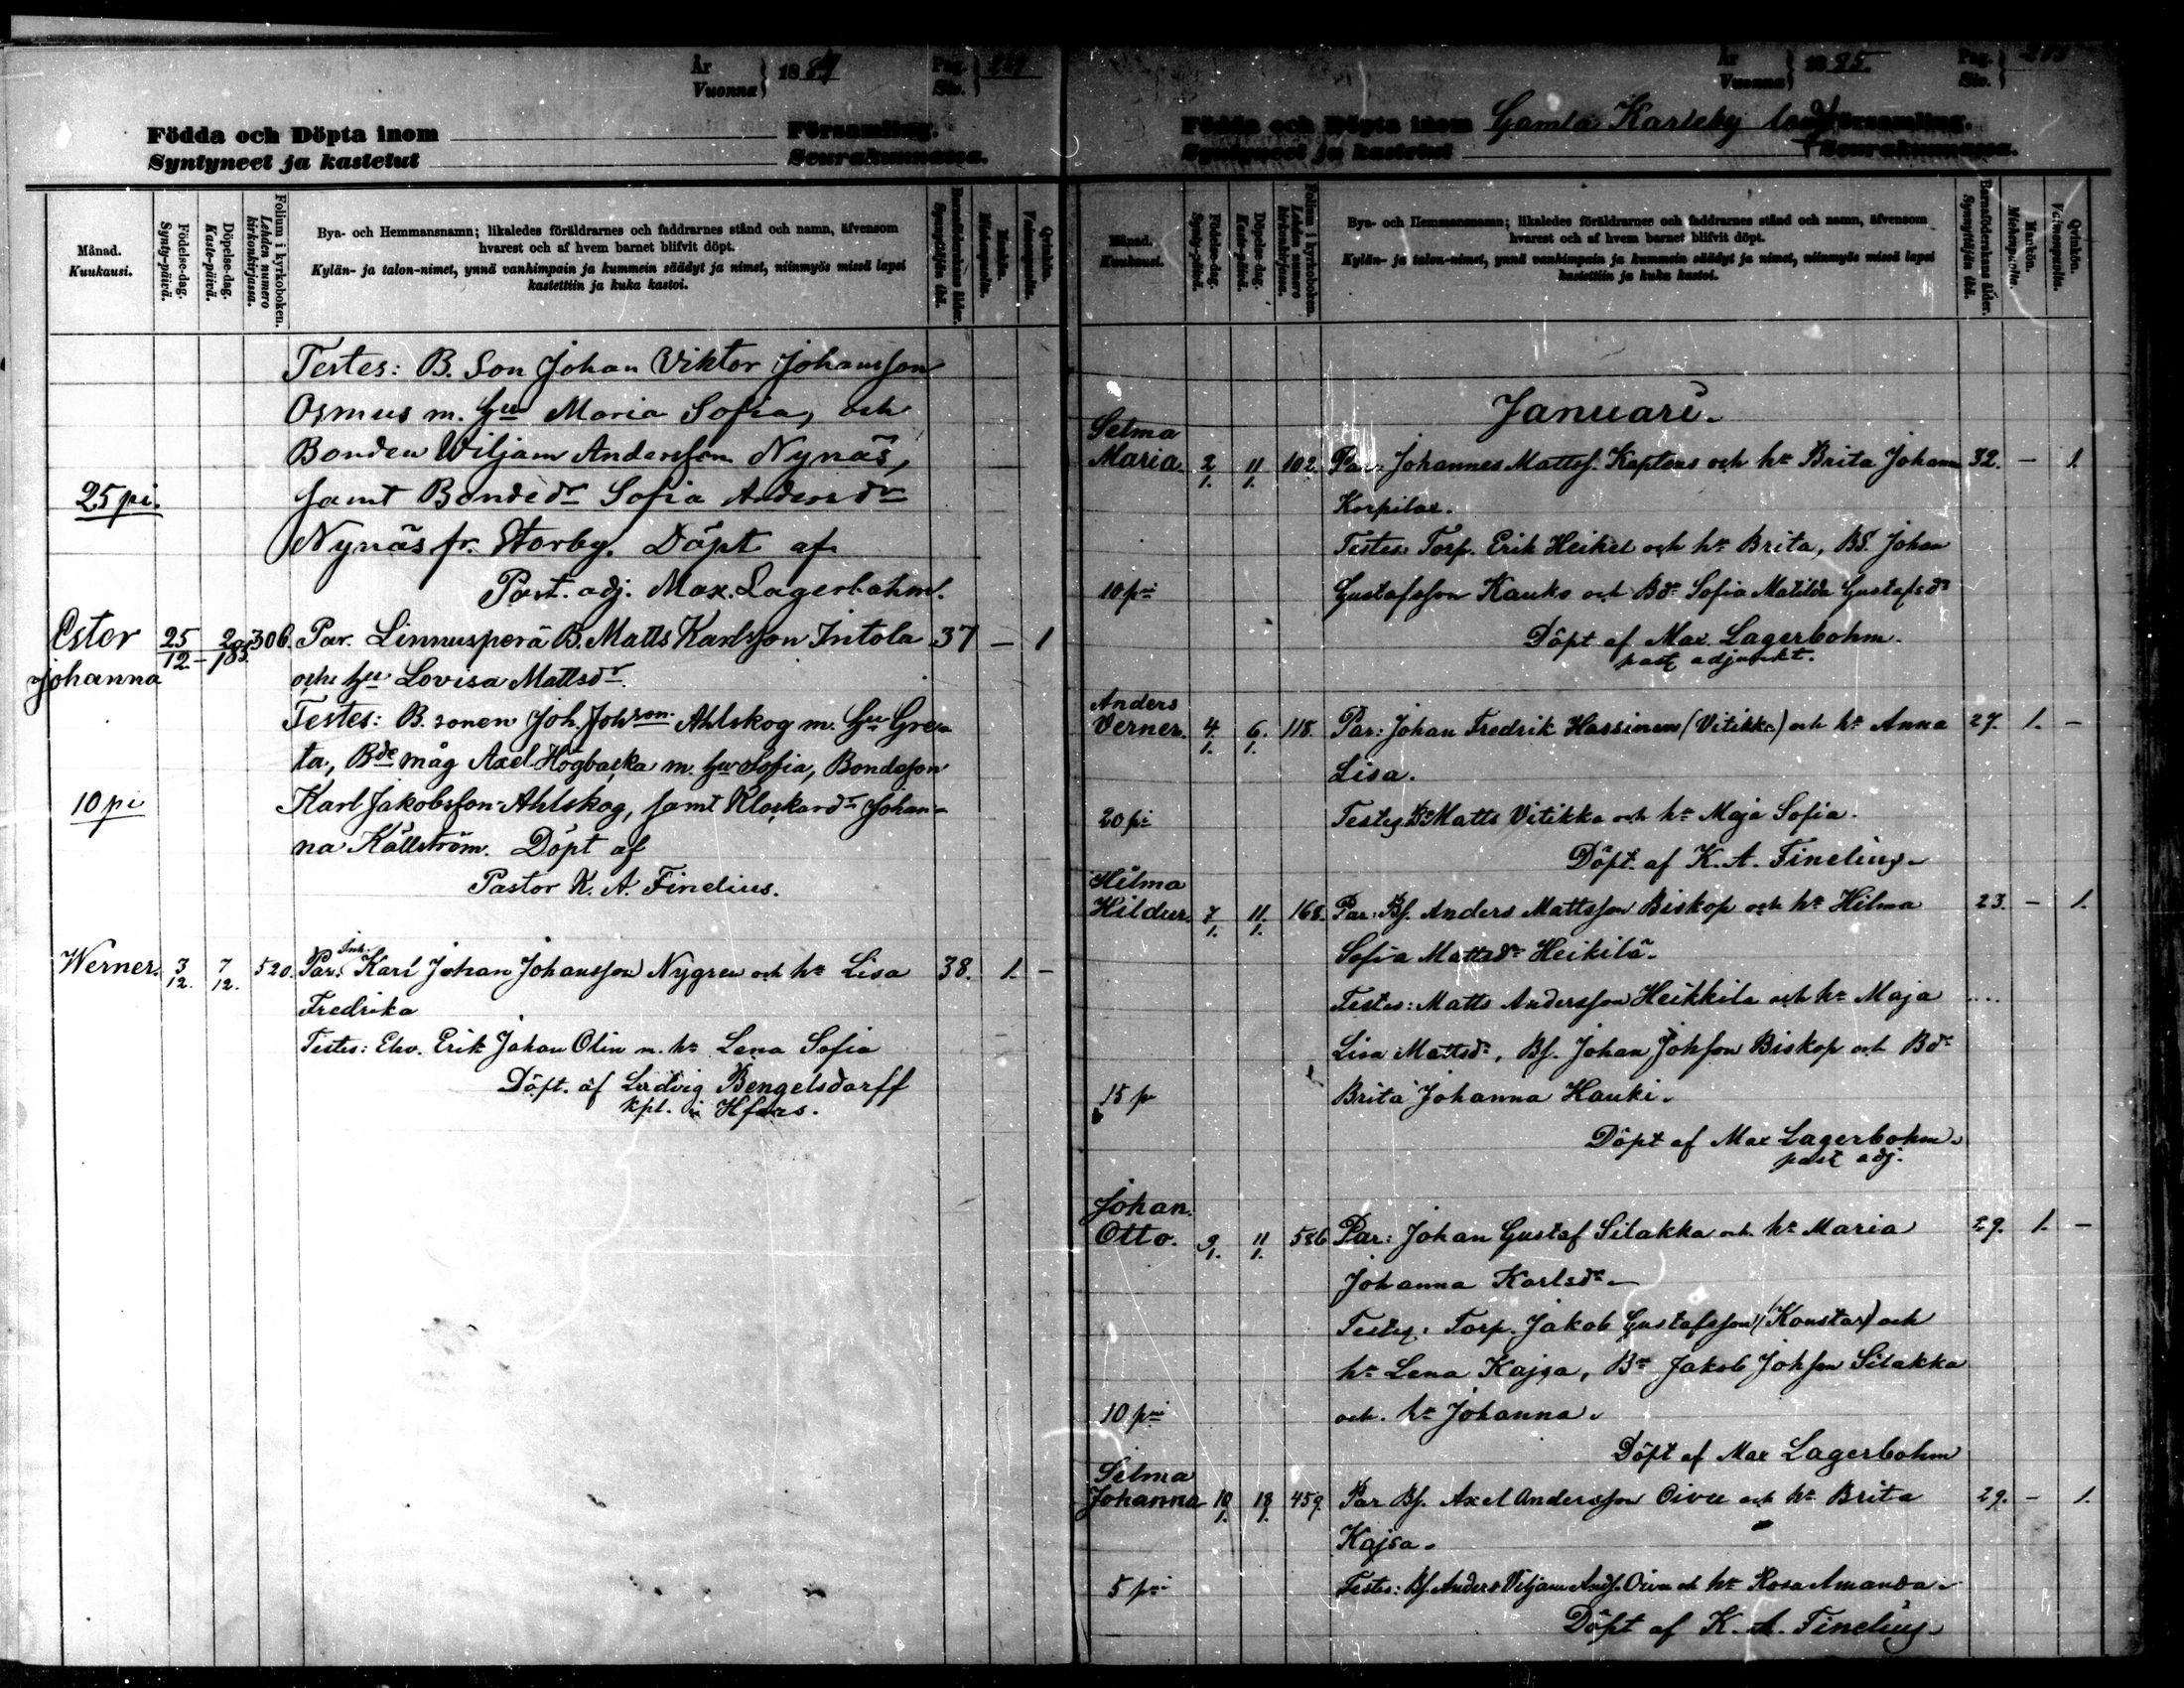 År
Vuonna } 1884
Pag.
Siv. }
Födda och Döpta inom Församling.
Syntyneet ja kastetut Seurakunnassa.
Månad.
Kuukausi.
Födelse-dag.
Synty-päivä.
Döpelse-dag.
Kaste-päivä.
Folium i kyrkoboken.
Lehden numero
kirkonkirjassa.
Bya- och Hemmansnamn; likaledes föräldrarnes och faddrarnes stånd och namn, äfvensom
hvarest och af hvem barnet blifvit döpt.
Kylän- ja talon-nimet, ynnä vanhimpain ja kummein säädyt ja nimet, niinmyös missä lapsi
kastettiin ja kuka kastoi.
Barnaföderskans ålder.
Synnyttäjän ikä.
Mankön.
Miehenpuolia.
Qvinkön.
Vaimonpuolia.
Testes: B. Son Johan Viktor Johansson
Osmus m. hu Maria Sofia, och
Bonden Wiljam Andersson Nynäs,
25 pi. samt Bondedr Sofia Andersdr
Nynäs fr. Storby. Döpt af
Past. adj. Max. Lagerbohm.
Ester 25 306. Par. Linnusperä B. Matts Karlsson Intola 37 — 1
Johanna 12 och hu Lovisa Mattsdr.
Testes: B. sonen Joh. Johson Ahlskog m. hu Gre-
ta, Bde måg Axel Högbacka m. hu Sofia, Bondeson
10 pi Karl Jakobsson Ahlskog, samt Klockardr Johan-
na Källström. Döpt af
Pastor K. A. Finelius.
Werner. 3/12. 7/12. 520. Par: Inh. Karl Johan Johansson Nygren och hu Lisa 38. 1. —
Fredrika
Testes: Erik Johan Olin m. hu Lena Sofia
Döpt. af Ludvig Bengelsdorff
kpl. i Hfors.
År
Vuonna } 1885.
Pag.
Siv. }
Födda och Döpta inom Gamla Karleby lands Församling.
Syntyneet ja kastetut Seurakunnassa.
Månad.
Kuukausi.
Födelse-dag.
Synty-päivä.
Döpelse-dag.
Kaste-päivä.
Folium i kyrkoboken.
Lehden numero
kirkonkirjassa.
Bya- och Hemmansnamn; likaledes föräldrarnes och faddrarnes stånd och namn, äfvensom
hvarest och af hvem barnet blifvit döpt.
Kylän- ja talon-nimet, ynnä vanhimpain ja kummein säädyt ja nimet, niinmyös missä lapsi
kastettiin ja kuka kastoi.
Barnaföderskans ålder.
Synnyttäjän ikä.
Mankön.
Miehenpuolia.
Qvinkön.
Vaimonpuolia.
Januari.
Selma
Maria. 2/1. 11/1. 102. Par: Johannes Mattsf. Kaptens och hu Brita Johann 32. — 1.
Korpilax.
Testes: Torp. Erik Heikel och hu Brita, BS. Johan
10 pi Gustafsson Kauko och Bdr Sofia Matilda Gustafsdr
Döpt af Max Lagerbohm.
past adjunkt.
Anders
Verner. 4/1. 6/1. 118. Par: Johan Fredrik Hassinen (Vitikka) och hu Anna 27. 1. —
Lisa.
20 pi Testes Bn Matts Vitikka och hu Maja Sofia.
Döpt af K. A. Finelius.
Hilma
Hildur. 7/1. 11/1. 168. Par: Bs. Anders Mattsson Biskop och hu Hilma 23. — 1.
Sofia Mattsdr Heikilä.
Testes: Matts Andersson Heikkilä och hu Maja
Lisa Mattsdr, Bs. Johan Johsson Biskop och Bdr
15 p Brita Johanna Hauki.
Döpt af Max Lagerbohm.
past adj.
Johan.
Otto. 9/1. 11/1. 586 Par: Johan Gustaf Silakka och hu Maria 29. 1. —
Johanna Karlsdr.
Testes: Torp. Jakob Gustafsson (Konstar) och
hu Lena Kajsa, Bn Jakob Johsson Silakka
10 pi och. hu Johanna.
Döpt af Max Lagerbohm
Selma
Johanna 10/1. 18/1. 459. Par Bs. Axel Andersson Oivu och hu Brita 29. — 1.
Kajsa.
5 pi Testes: Bs. Anders Viljam Andf. Oivu och hu Rosa Amanda.
Döpt af K. A. Finelius.